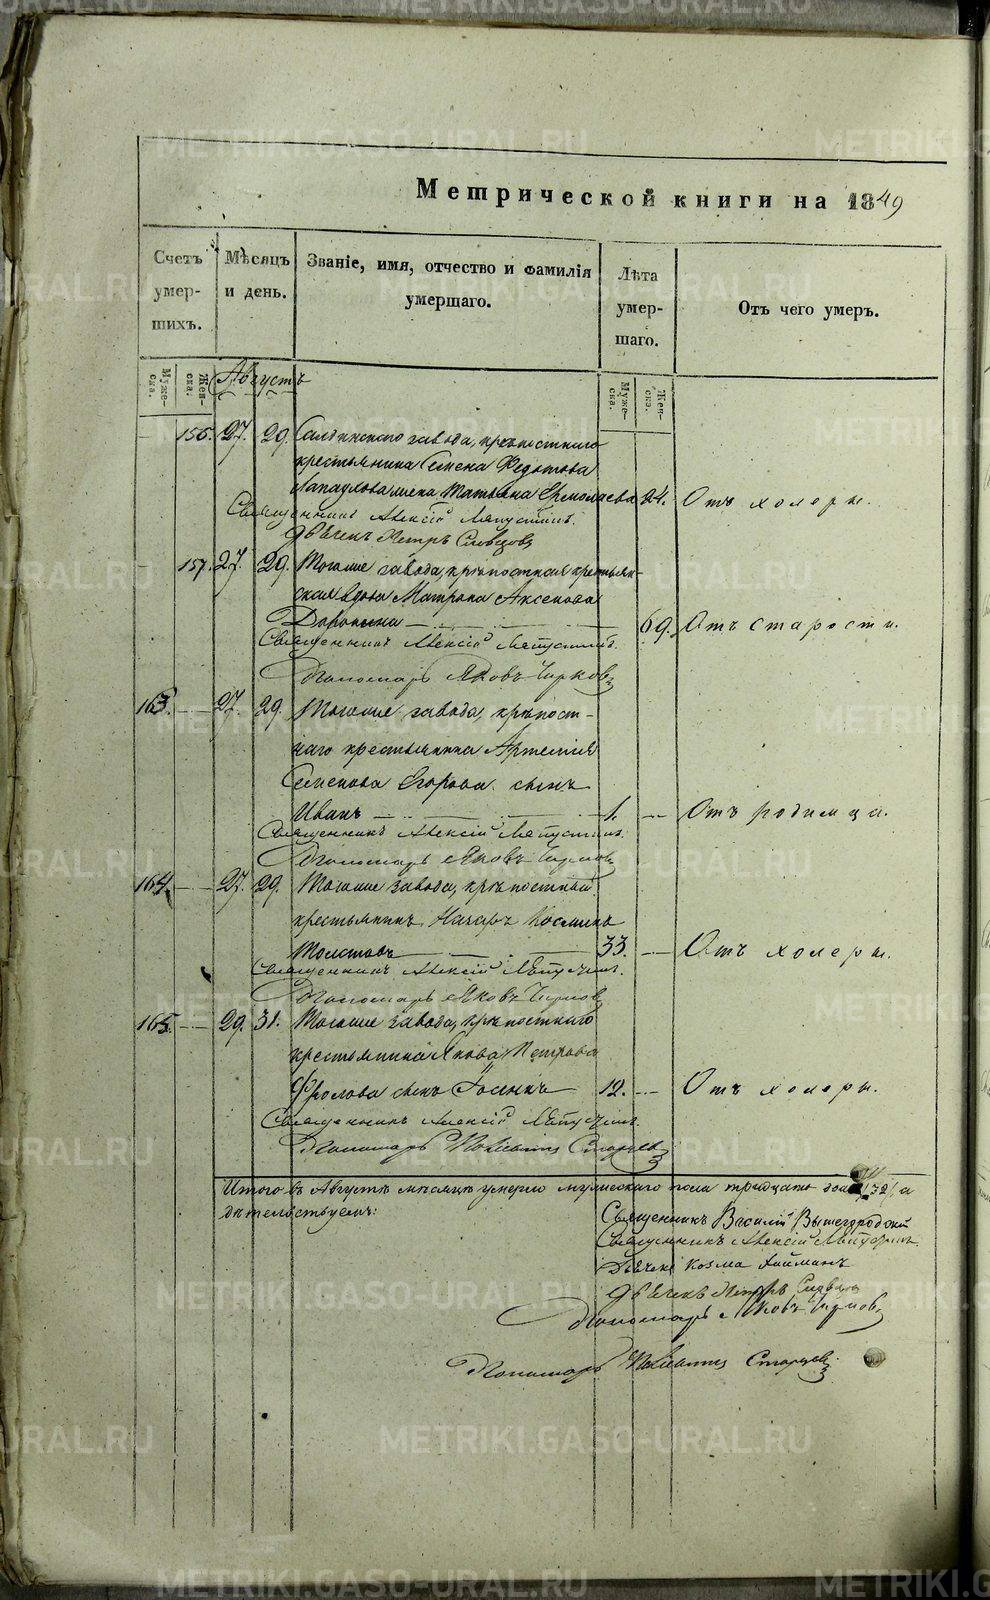 Метрической книги на 1849
Счетъ умер-шихъ.
Мѣсяцъ и день.
Званіе, имя, отчество и фамилія умершаго.
Лѣта умер-шаго.
Отъ чего умеръ.
Муже-ска.
Жен-ска.
Августъ
Муже-ска.
Жен-ска.
156. 27. 29. Салдинскаго завода, крѣпостнаго
крестьянина Семена Федотова
жена Татьяна Ермолаева 24. Отъ холеры.
Священникъ Алексій Ляпустинъ.
Дьячекъ Петръ Словцовъ
157. 27. 29. Тогоже завода, крѣпостная крестьян-
ская вдова Матрона Аксенова
Доронина 69. Отъ старости.
Священникъ Алексій Ляпустинъ.
Пономарь Яковъ Чирковъ
163. 27. 29. Тогоже завода, крѣпост-
наго крестьянина Артемія
Семенова Егорова сынъ
Иванъ 1. Отъ родимца.
Священникъ Алексій Ляпустинъ.
Пономарь Яковъ Чирковъ
164. 27. 29. Тогоже завода, крѣпостный
крестьянинъ Назаръ Косминъ
Толстовъ 33. Отъ холеры.
Священникъ Алексій Ляпустинъ.
Пономарь Яковъ Чирковъ
165. 29. 31. Тогоже завода, крѣпостнаго
крестьянина Якова Петрова
Фролова сынъ 12. Отъ холеры.
Священникъ Алексій Ляпустинъ.
Пономарь Старцевъ
Итого въ Августѣ мѣсяцѣ умерло мужескаго пола тридцать два /32/, а
Священникъ Василій Вышегородскій
Священникъ Алексій Ляпустинъ.
Дьячекъ Козма
Дьячекъ Петръ Словцовъ
Пономарь Яковъ Чирковъ
Пономарь Старцевъ
METRIKI.GASO-URAL.RU